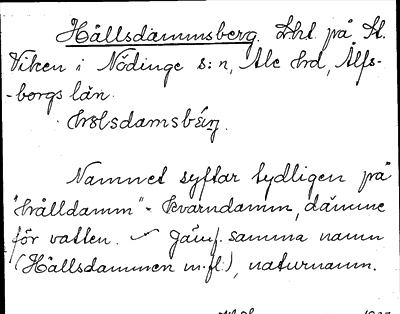 Hållsdammsberg. Lht. på St.
Viken i Nödinge s:n, Ale hrd, Älfs-
-borgs län.
hålsdamsbéŗ.
Namnet syftar tydligen på
"hålldamm" - kvarndamm, dämme
för vatten. Jämf. samma namn
(Hållsdammen m.fl.), naturnamn.